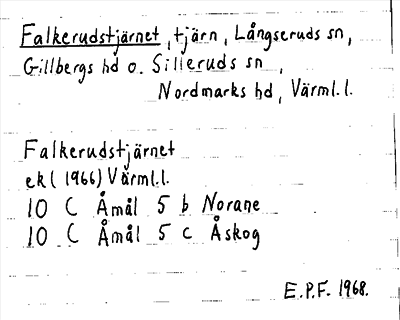 Falkerudstjärnet, tjärn, Långseruds sn,
Gillbergs hd o. Silleruds sn,
Nordmarks hd, Värml.l.
Falkerudstjärnet
ek (1966) Värml.l.
10 C Åmål 5 b Norane
10 C Åmål 5 c Åskog
E.P.F. 1968.